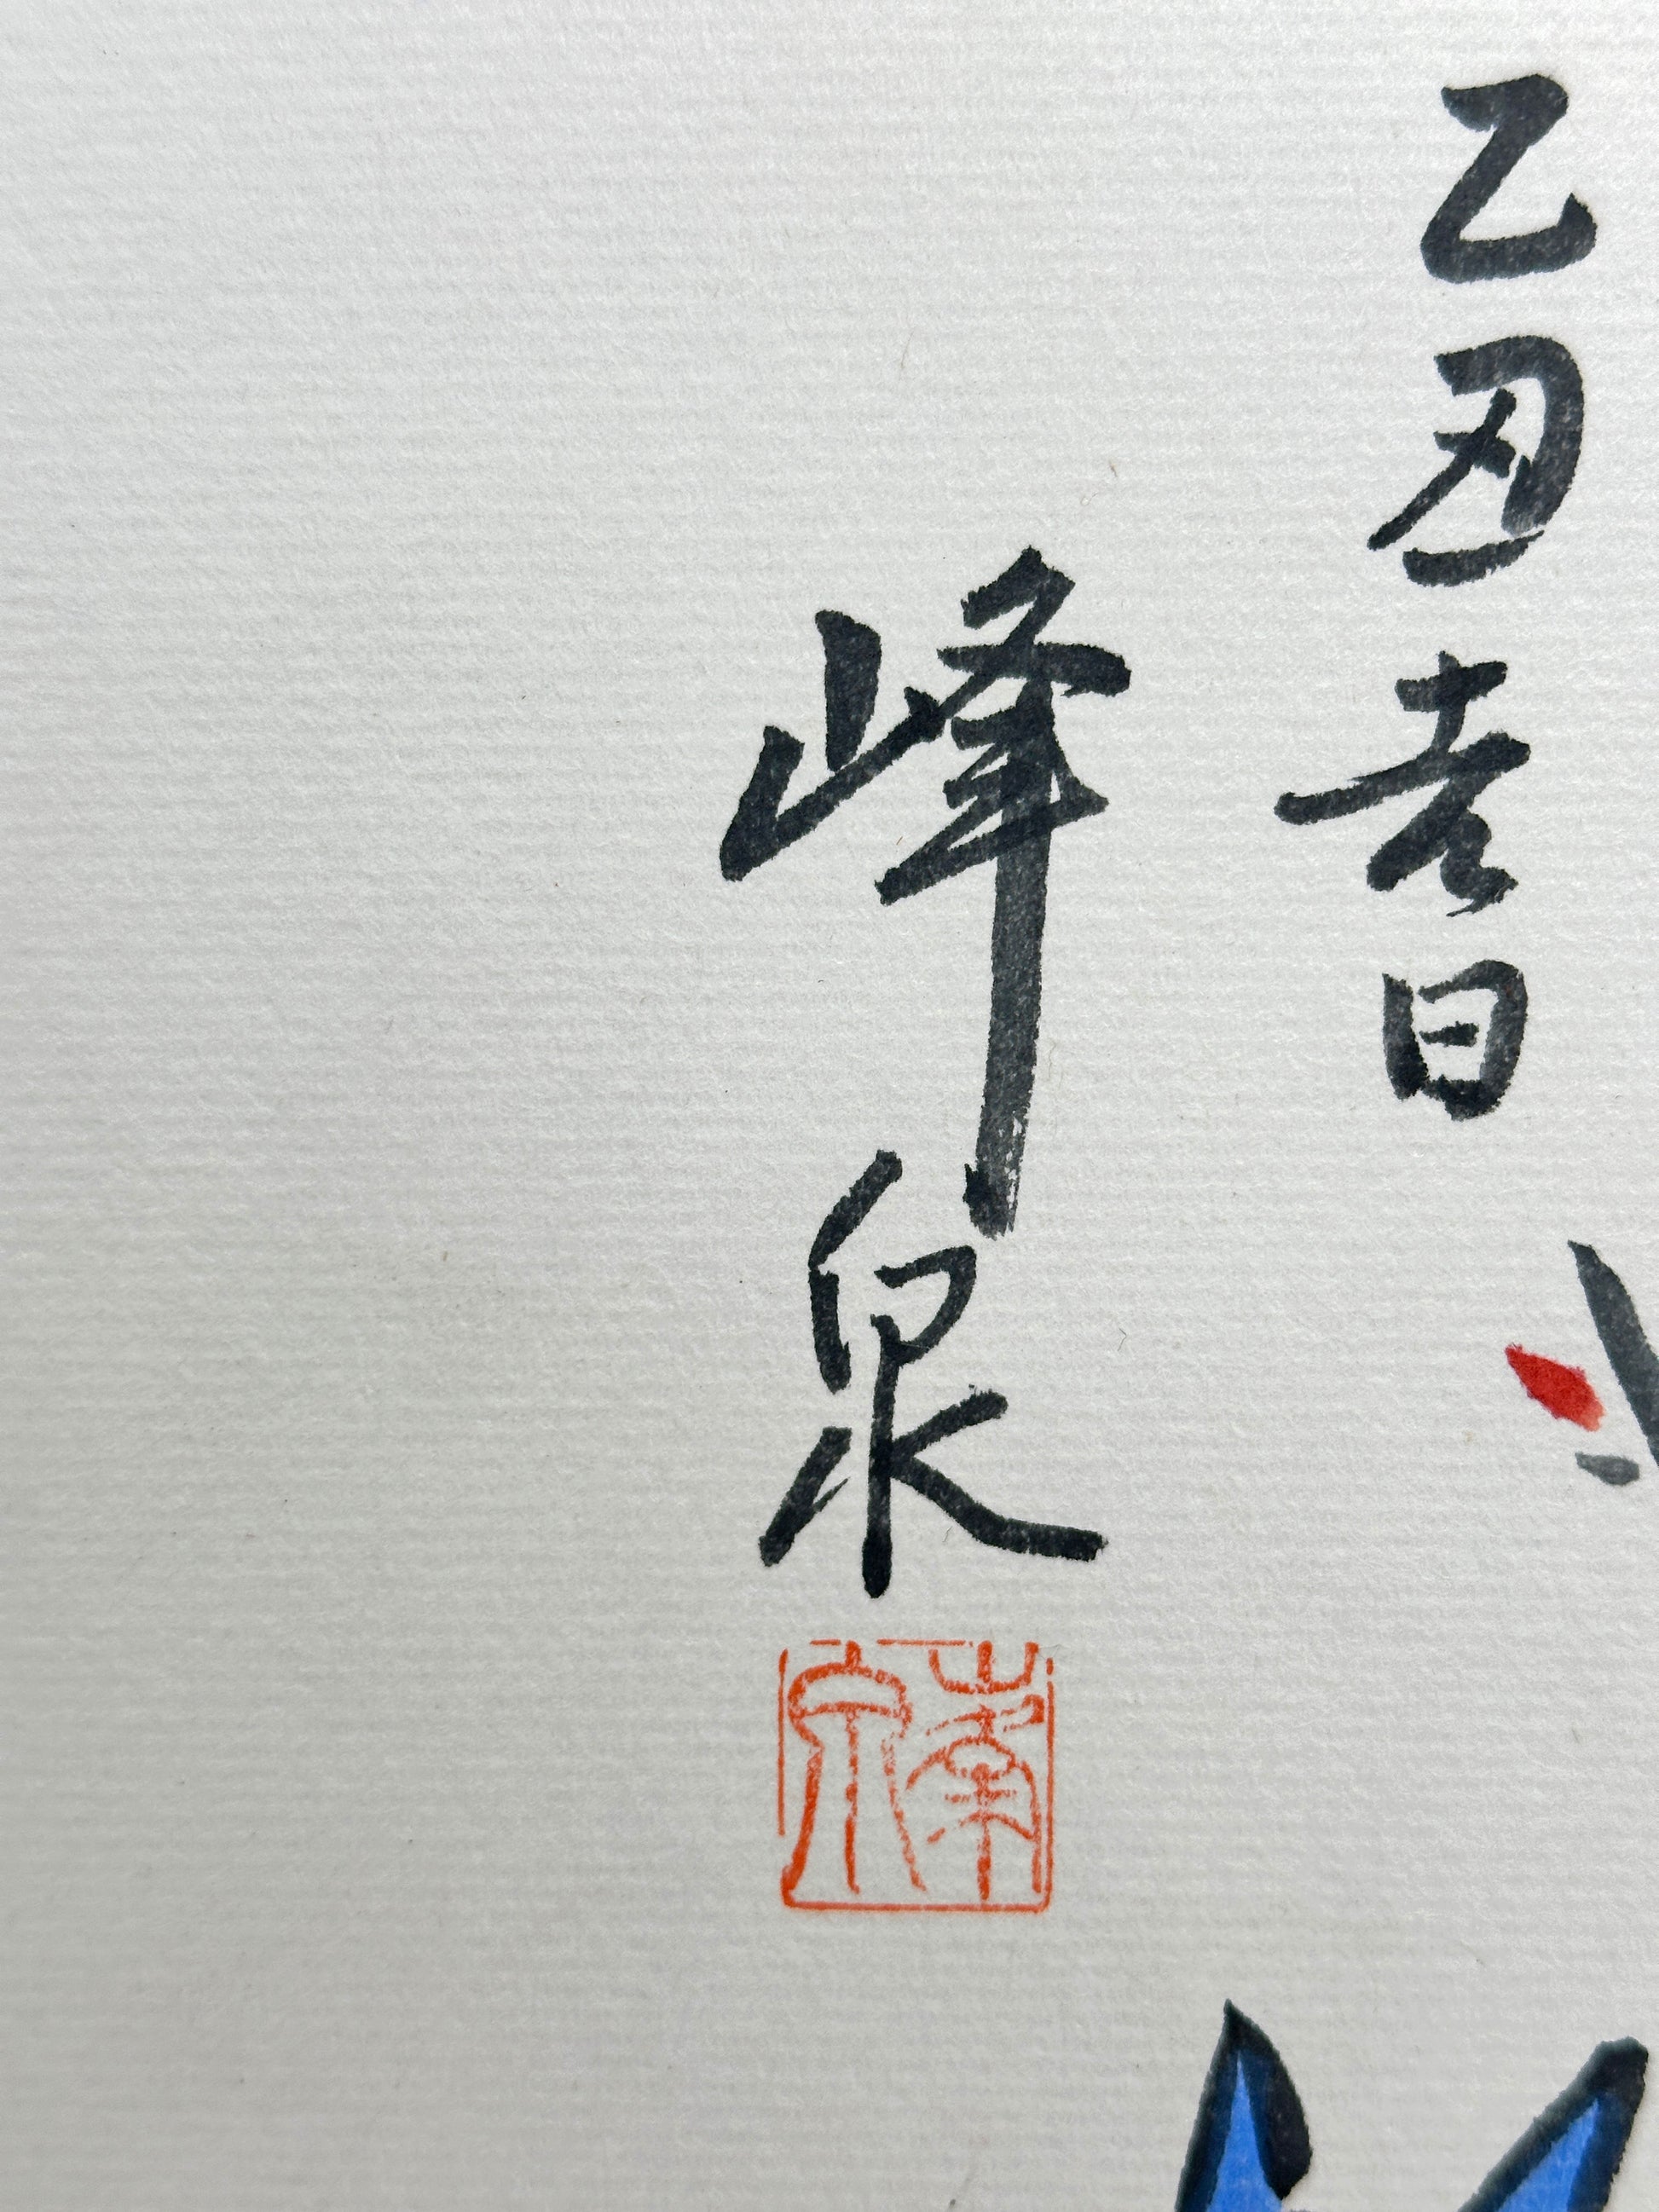 乙丑吉日
峰泉
峰泉